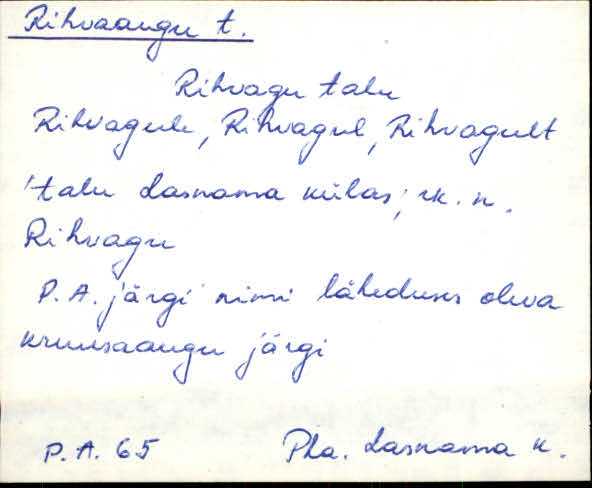 Rihvaaugu t.
Rihvagu talu
Rihvagule, Rihvagul, Rihvagult
'talu Lasnama külas', rk. n.
Rihvagu
P.A. järgi nimi läheduses oleva
kruusaaugu järgi
P.A. 65 Pha. Lasnama k.